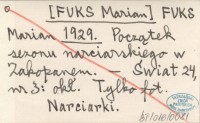 [FUKS Marian] FUKS
Marian 1929. Początek
sezonu narciarskiego w
Zakopanem. Świat 24,
nr 3: okł. Tylko fot.
Narciarki.